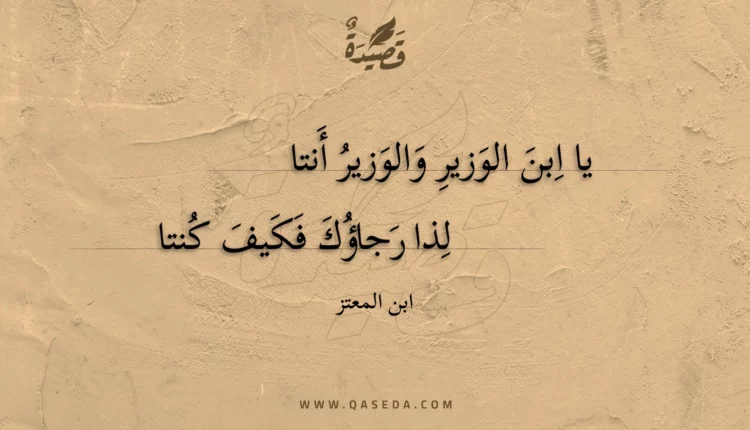 قَصِيْدَةٌ
يا اِبنَ الوَزيرِ وَالوَزيرُ أَنتا
لِذا رَجاؤُكَ فَكَيفَ كُنتا
ابن المعتز
WWW.QASEDA.COM